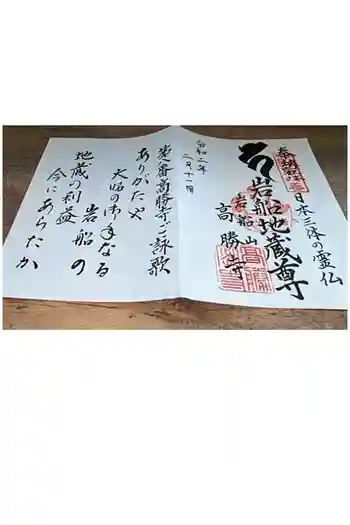 奉拝
日本三体の霊仏
岩船地蔵尊
岩船山
高勝寺
令和二年
二月十一日
高勝寺ご詠歌
ありがたや
大師の御手なる
岩船の
地蔵の利益
今にあらたか